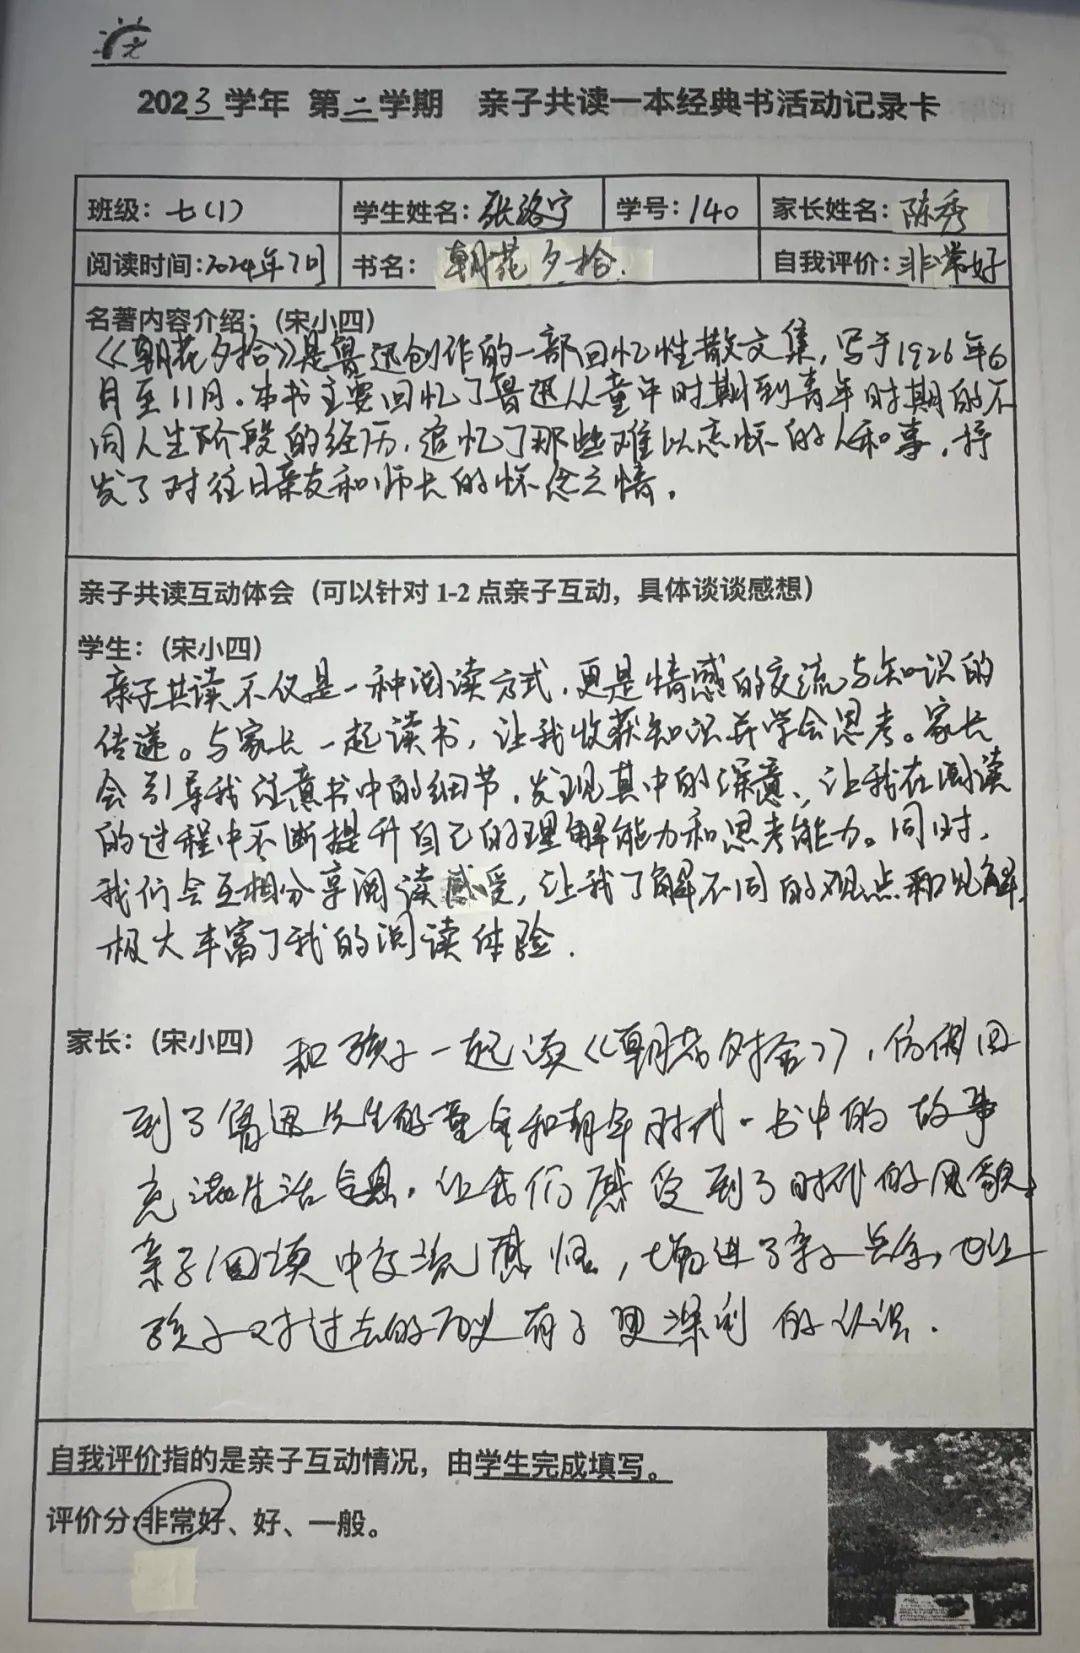 2023学年 第二学期 亲子共读一本经典书活动记录卡
班级：七(1) 学生姓名：张洛宁 学号：140 家长姓名：陈秀
阅读时间：2024年7月 书名：朝花夕拾. 自我评价：非常好
名著内容介绍：(宋小四)
《朝花夕拾》是鲁迅创作的一部回忆性散文集，写于1926年6
月至11月.本书主要回忆了鲁迅从童年时期到青年时期的不
同人生阶段的经历，追忆了那些难以忘怀的人和事，抒
发了对往日亲友和师长的怀念之情.
亲子共读互动体会（可以针对 1-2 点亲子互动，具体谈谈感想）
学生：(宋小四)
亲子共读不仅是一种阅读方式，更是情感的交流与知识的
传递。与家长一起读书，让我收获知识并学会思考。家长
会引导我注意书中的细节，发现其中的深意，让我在阅读
的过程中不断提升自己的理解能力和思考能力。同时，
我们会互相分享阅读感受，让我了解不同的观点和见解，
极大丰富了我的阅读体验.
家长：(宋小四) 和孩子一起读《朝花夕拾》，仿佛回
到了鲁迅先生的童年和青年时代.书中的故事
充满生活气息，让我们感受到了时代的风貌，
亲子阅读中交流感悟，增进了亲子关系，也让
孩子对过去的历史有了更深刻的认识.
自我评价指的是亲子互动情况，由学生完成填写。
评价分:非常好、好、一般。